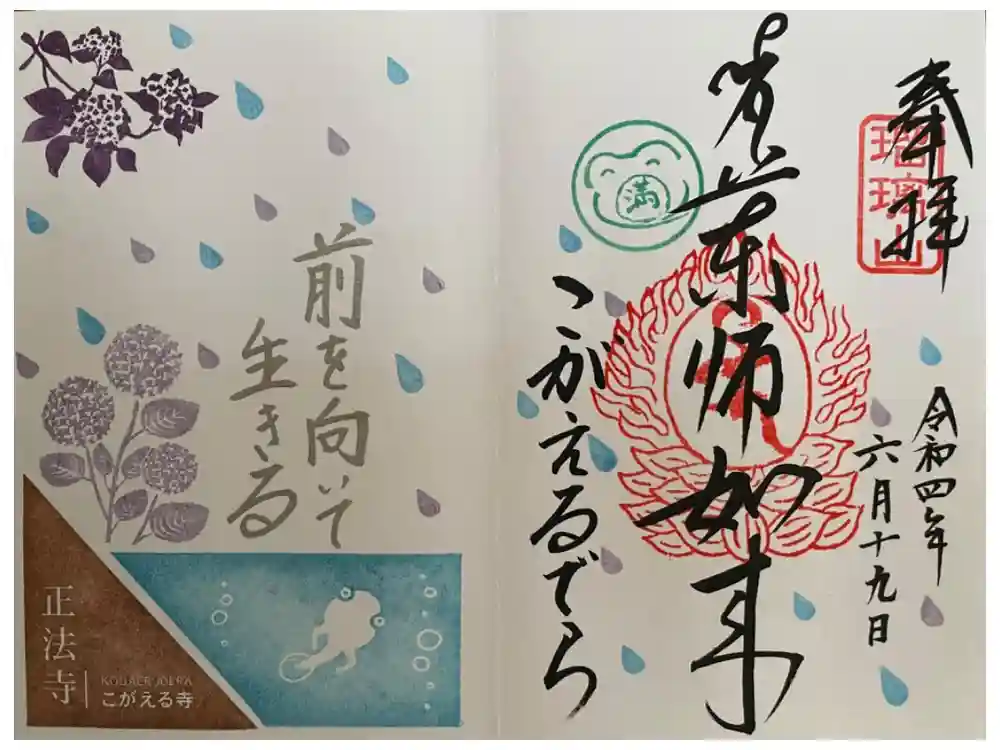 奉拝
瑠璃山
令和四年
六月十九日
薬師如来
満
こがえるでら
前を向いて
生きる
正法寺
KOGAERU DERA
こがえる寺